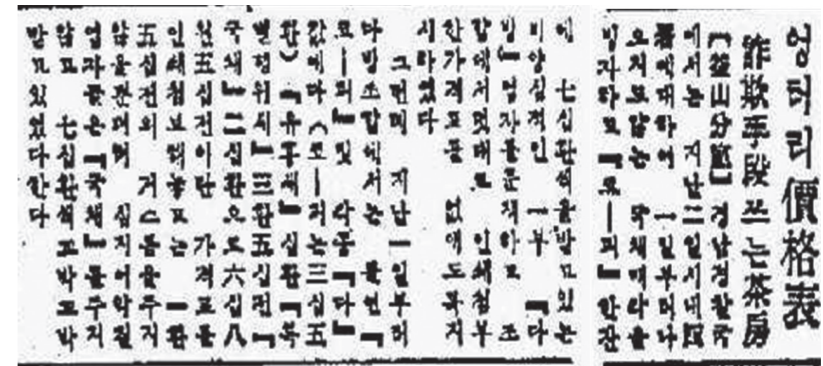 엉터리價格表
詐欺手段쓰는茶房
【釜山分室】경남경찰국
에서는 지난二일시내四
署에대하여 一일부터다
오지도않는 국채
『코―피』한잔
에 七십환식을받고있는
비양심적인 一부 『다
방』업자를문책하고 조
합에서멋대로 인쇄첨부
한가격표를 없애도록지
시하였다
그런데 지난一일부터
다방조합에서는 돌연『
코―피』및 각종『다』
값에다(코―피는三십五
환) 십환『특
별행위세』三환五십전『
국채』二십환으로六십八
원五십전이란 가격표를
인쇄첨보해놓고는 一환
五십전의 거스름을주지
심지어악질
업자들은『국채』를주지
않고 七십환식꼬박꼬박
받고있었다한다